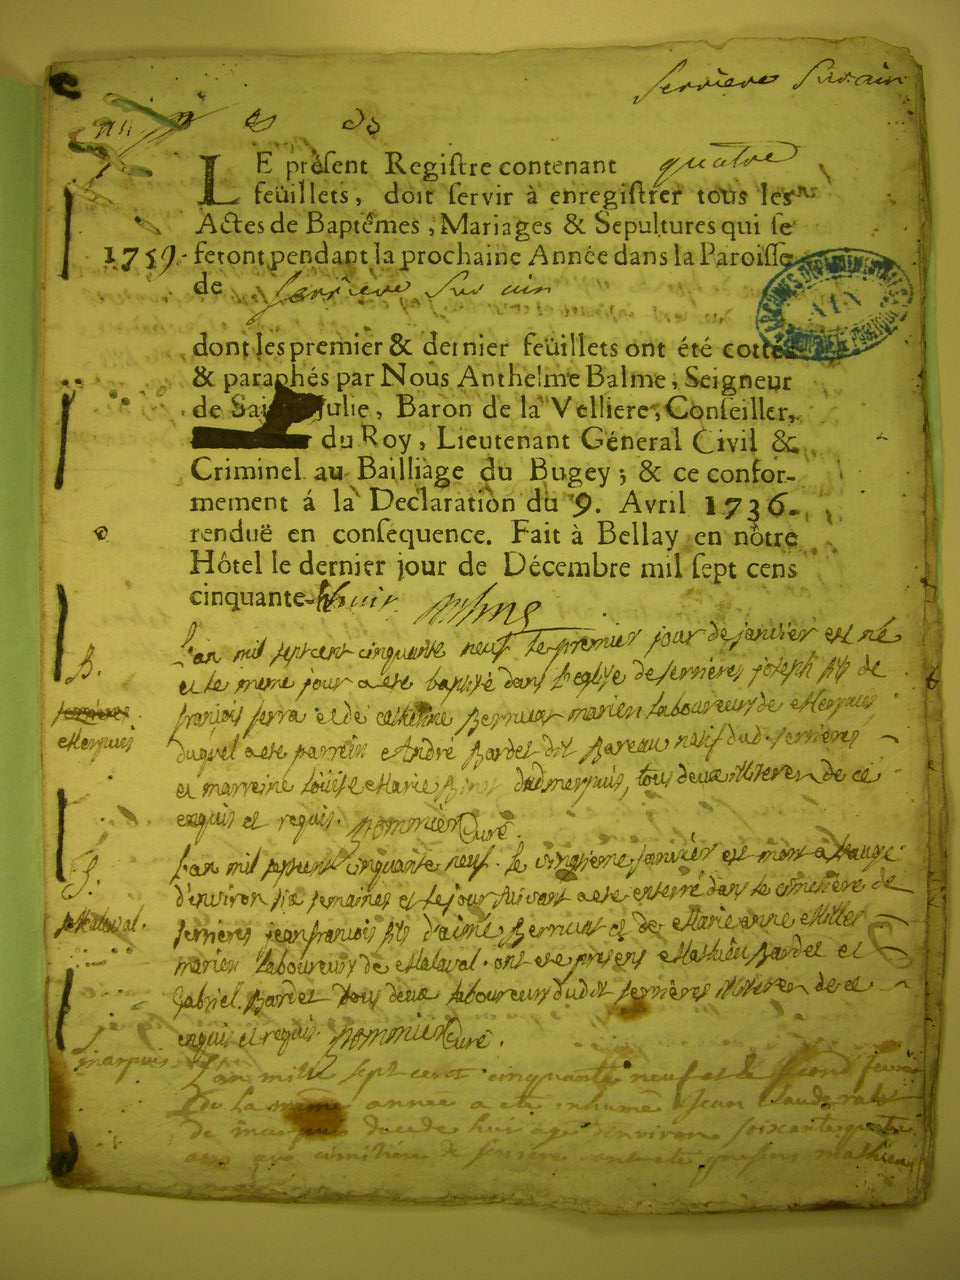 Serriere Sur ain
LE présent Registre contenant quatre
feüillets, doit servir à enregistrer tous les
Actes de Baptêmes, Mariages & Sepultures qui se
1759. feront pendant la prochaine Année dans la Paroisse
de Serriere Sur ain
dont les premier & dernier feüillets ont été cottés
& paraphés par Nous Anthelme Balme, Seigneur
de Sainte Julie, Baron de la Velliere, Conseiller,
du Roy, Lieutenant Géneral Civil &
Criminel au Bailliage du Bugey ; & ce confor-
mement á la Declaration du 9. Avril 1736.
renduë en consequence. Fait à Bellay en nôtre
Hôtel le dernier jour de Décembre mil sept cens
cinquante-huit.
B. L'an mil sept cent cinquante neuf le premier jour de janvier est né
et le meme jour a eté baptisé dans l'eglise de serrieres joseph fils de
françois serra et de catherine Berruat mariés laboureurs de Merpuis
Merpuis
duquel a eté parrein André Bardet dit Bareau natif dud. serrieres
et marreine Loüise Marie dud merpuis, tous deux illiteres de ce
enquis et requis. Nommier Curé.
S. L'an mil sept cent cinquante neuf. le vingtieme janvier est mort
d'environ six semaines et le jour suivant a eté enterré dans le cimetiere de
Malaval.
serrieres jean françois fils d'aimé Berruat et de Marie anne Millet
mariés laboureurs de Malaval. ont eté presens Mathieu Bardet et
Gabriel Bardet tous deux laboureurs dudit serrieres illiteres de ce
enquis et requis. Nommier Curé.
S. marpuis L'an mille sept cent cinquante neuf et le second fevrier
de la meme année a eté inhumé Jean Claude
de decede hier agé d'environ soixante quatre
ans au cimitiere de serriere ont eté presens mathieu